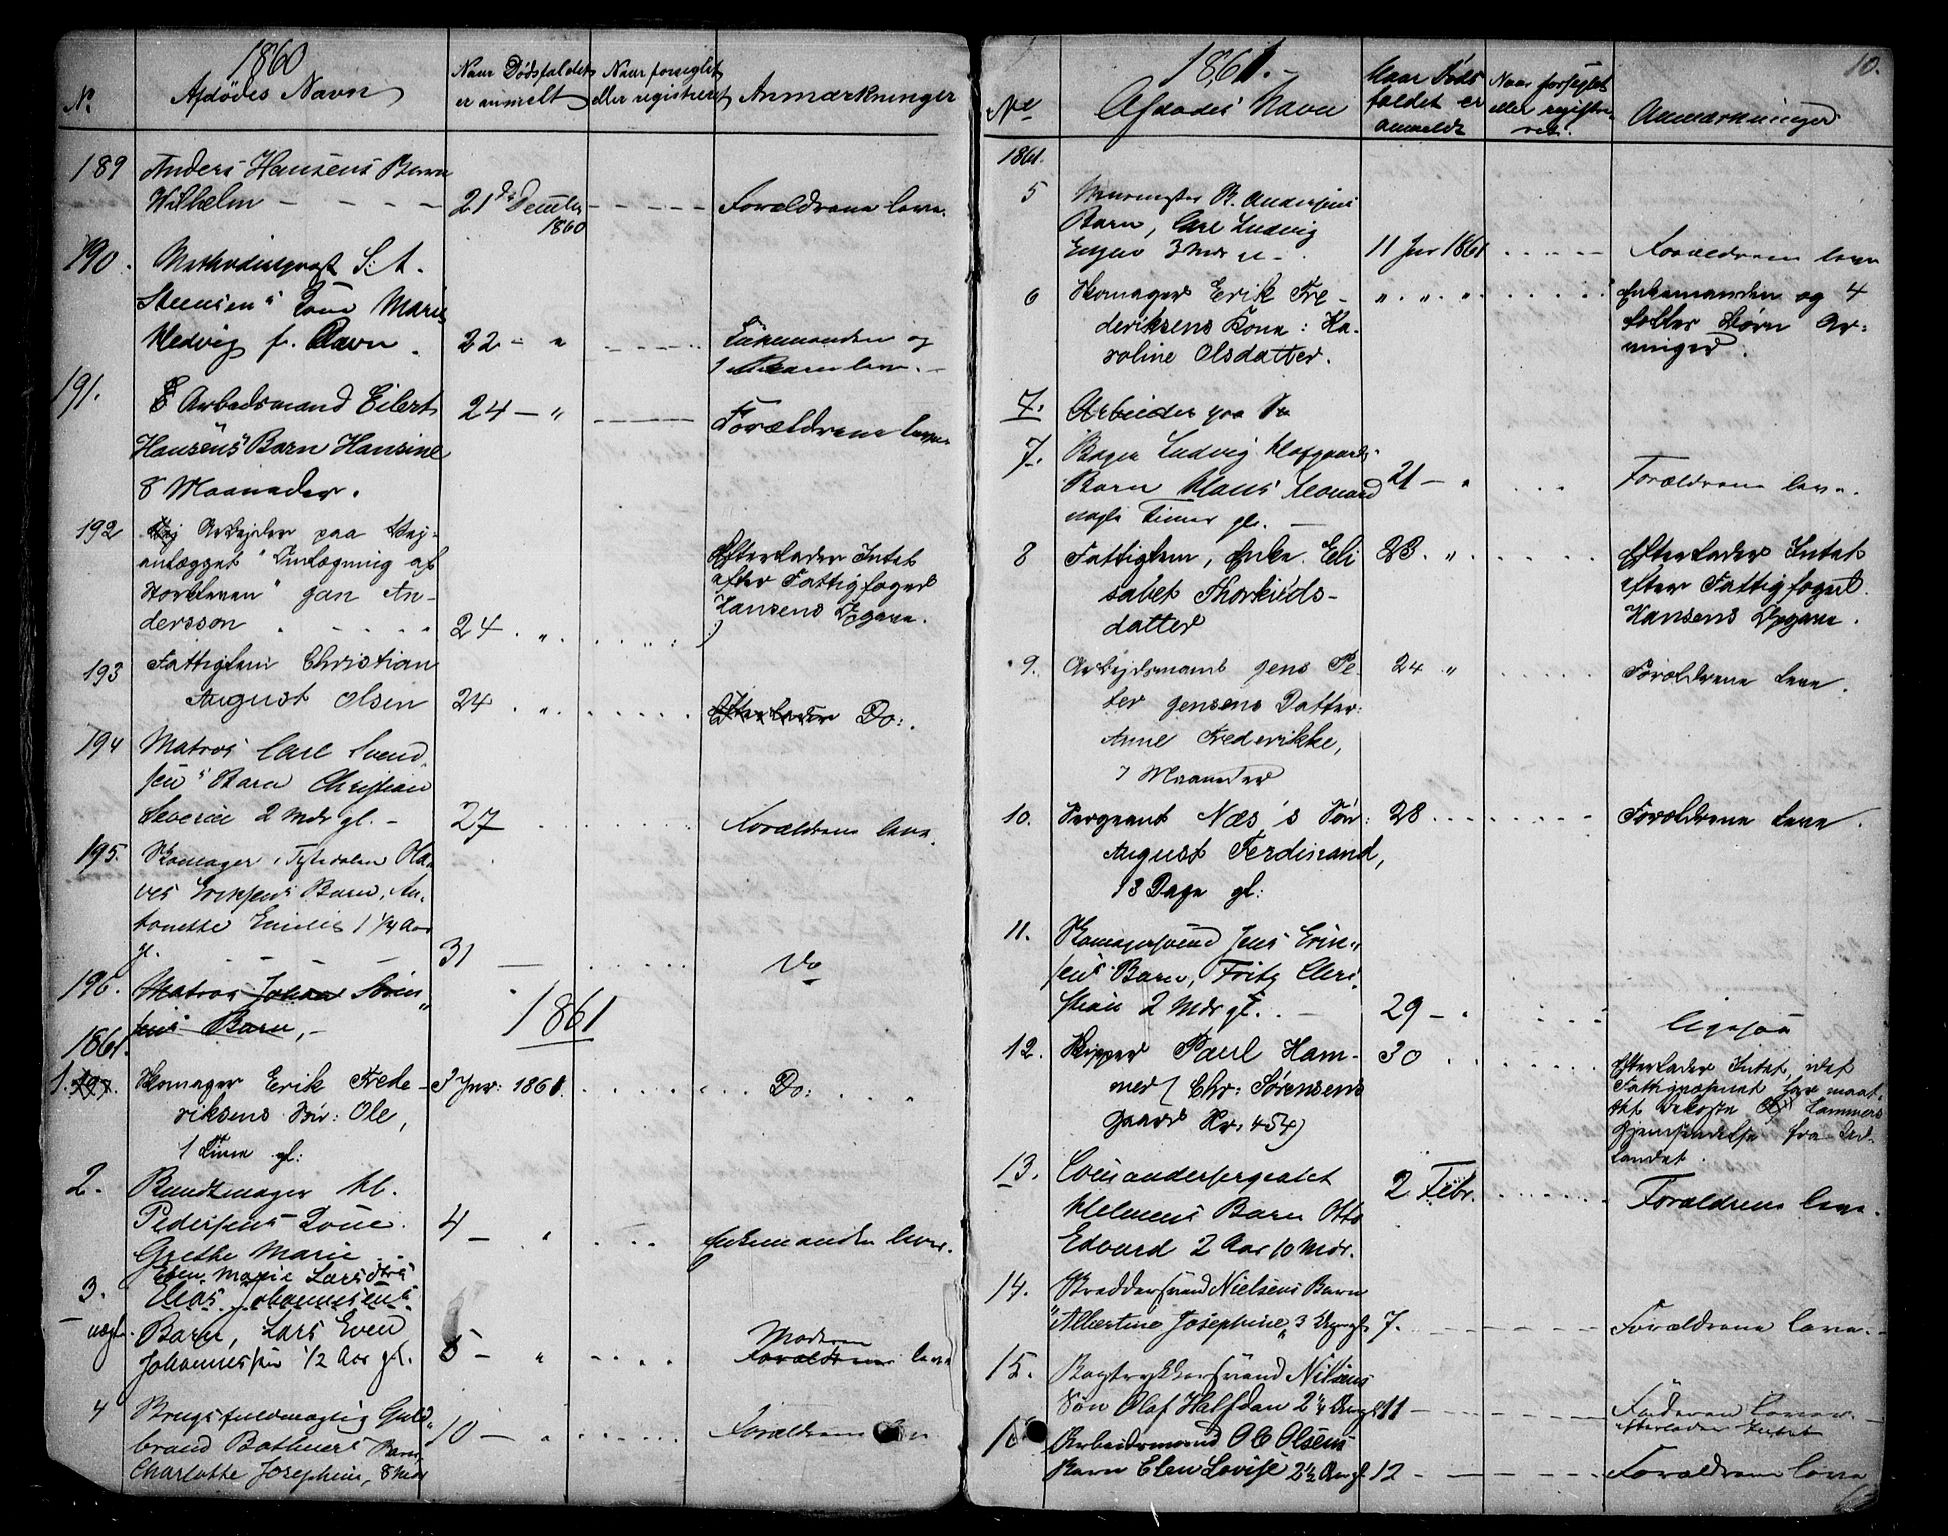 1860
No
Afdødes Navn
Naar Dødsfaldet
er anmelt
Naar forseglet
eller registreret
Anmærkninger
189
Anders Hansens Barn
Wilhelm - - - -
21de December
1860
Forældrene leve.
190.
Methodistpræst S. A.
Steensens Kone Maria
Hedvig f. Ravn.
22 - "
Enkemanden og
1 Barn leve. -
191.
Arbedsmand Eilert
Hansens Barn Hansine
8 Maaneder.
24 - "
Forældrene leve
192
Arbejder paa Vej-
anlægget "Omlægning af
Jan An-
dersson
24. ".
Efterlader Intet
efter Fattigfoged
Hansens Opgave.
193
Fattiglem Christian
August Olsen
24. ".
Efterlader Do:.
194
Matros Carl Svend-
sens Barn Christian
Severin 2 Mdr gl. -
27
Forældrene leve.
195.
Skomager i Tyhedalen Ola-
ves Eriksens Barn, An-
tonette Emilie 1 1/4 Aar
gl.
31 -
Do
196.
Matros Johan Sören-
sens Barn, -
1861
1861.
1. 197.
Skomager Erik Frede-
riksens Sön: Ole,
1 Time gl:
3 Jnr: 1861.
Do:
2.
Bundtmager Kl.
Pedersens Kone
Grethe Marie
Elen Marie Larsdtrs
4 - "
Enkemanden lever.
3.
Elias Johannesens
uægte.
Barn, Lars Even
Johannessen 1/2 Aar gl.
8 - "
Moderen
Forældrene leve
4
Brugsfuldmægtig Guld-
brand Bothners Barn
Charlotte Josephine, 8 Mdr
10 - "
Forældrene
1861. -
10.
No
Afdødes Navn
Naar Døds
faldet er
anmeldt
Naar forseglet
eller registre-
ret.
Anmærkninger
1861.
5
Murmester R. Andersens
Barn, Carl Ludvig
3 Mdr
11 Jnr 1861
Forældrene leve
6
Skomager Erik Fre-
deriksens Kone: Ka-
roline Olsdatter.
". ". ".
Enkemanden og 4
fælles Börn Ar-
vinger.
7.
Arbeider paa
7.
Bager Ludvig Hafgaards
Barn Hans Leonard
nogle Timer gl. -
21 - "
Forældrene leve.
8
Fattiglem, Enke Eli
sabet Thorkilds-
datter
23. ".
Efterlader Intet
efter Fattigfoged
Hansens Opgave.
9.
Arbejdsmand Jens Pe-
ter Jensens Datter:
Anne Frederikke,
7 Maaneder
24 "
Forældrene leve.
10.
Sergeant Næs's Sön:
August Ferdinand,
13 Dage gl:
28
Forældrene leve.
11.
Skomagersvend Jens Erik-
sens Barn, Fritz Chri-
stian 2 Mdr gl. -
29 - "
ligesaa
12.
Skipper Paul Ham-
mer (Chr: Sörensens
Gaard Nr. 454)
30
Efterlader Intet, idet
Fattigvæsenet har maat-
tet bekoste Hammers
Hjemsendelse fra Ud-
landet.
13.
Commandersergeant
Helmers Barn Otto
Edvard 2 Aar 10 Mdr.
2 Febr.
Forældrene leve.
14.
Skreddersvend Nielsens Barn
"Albertine Josephine" 3
7.
Forældrene leve. -
15.
Bogtrykkersvend Nilsens
Sön Olaf Halfdan 2 1/4
11 -
Faderen lever -
efterlader Intet
16
Arbeidsmand O C Olsens
Barn Elen Lovise 2 1/2 Aar gl
12 -
Forældrene leve